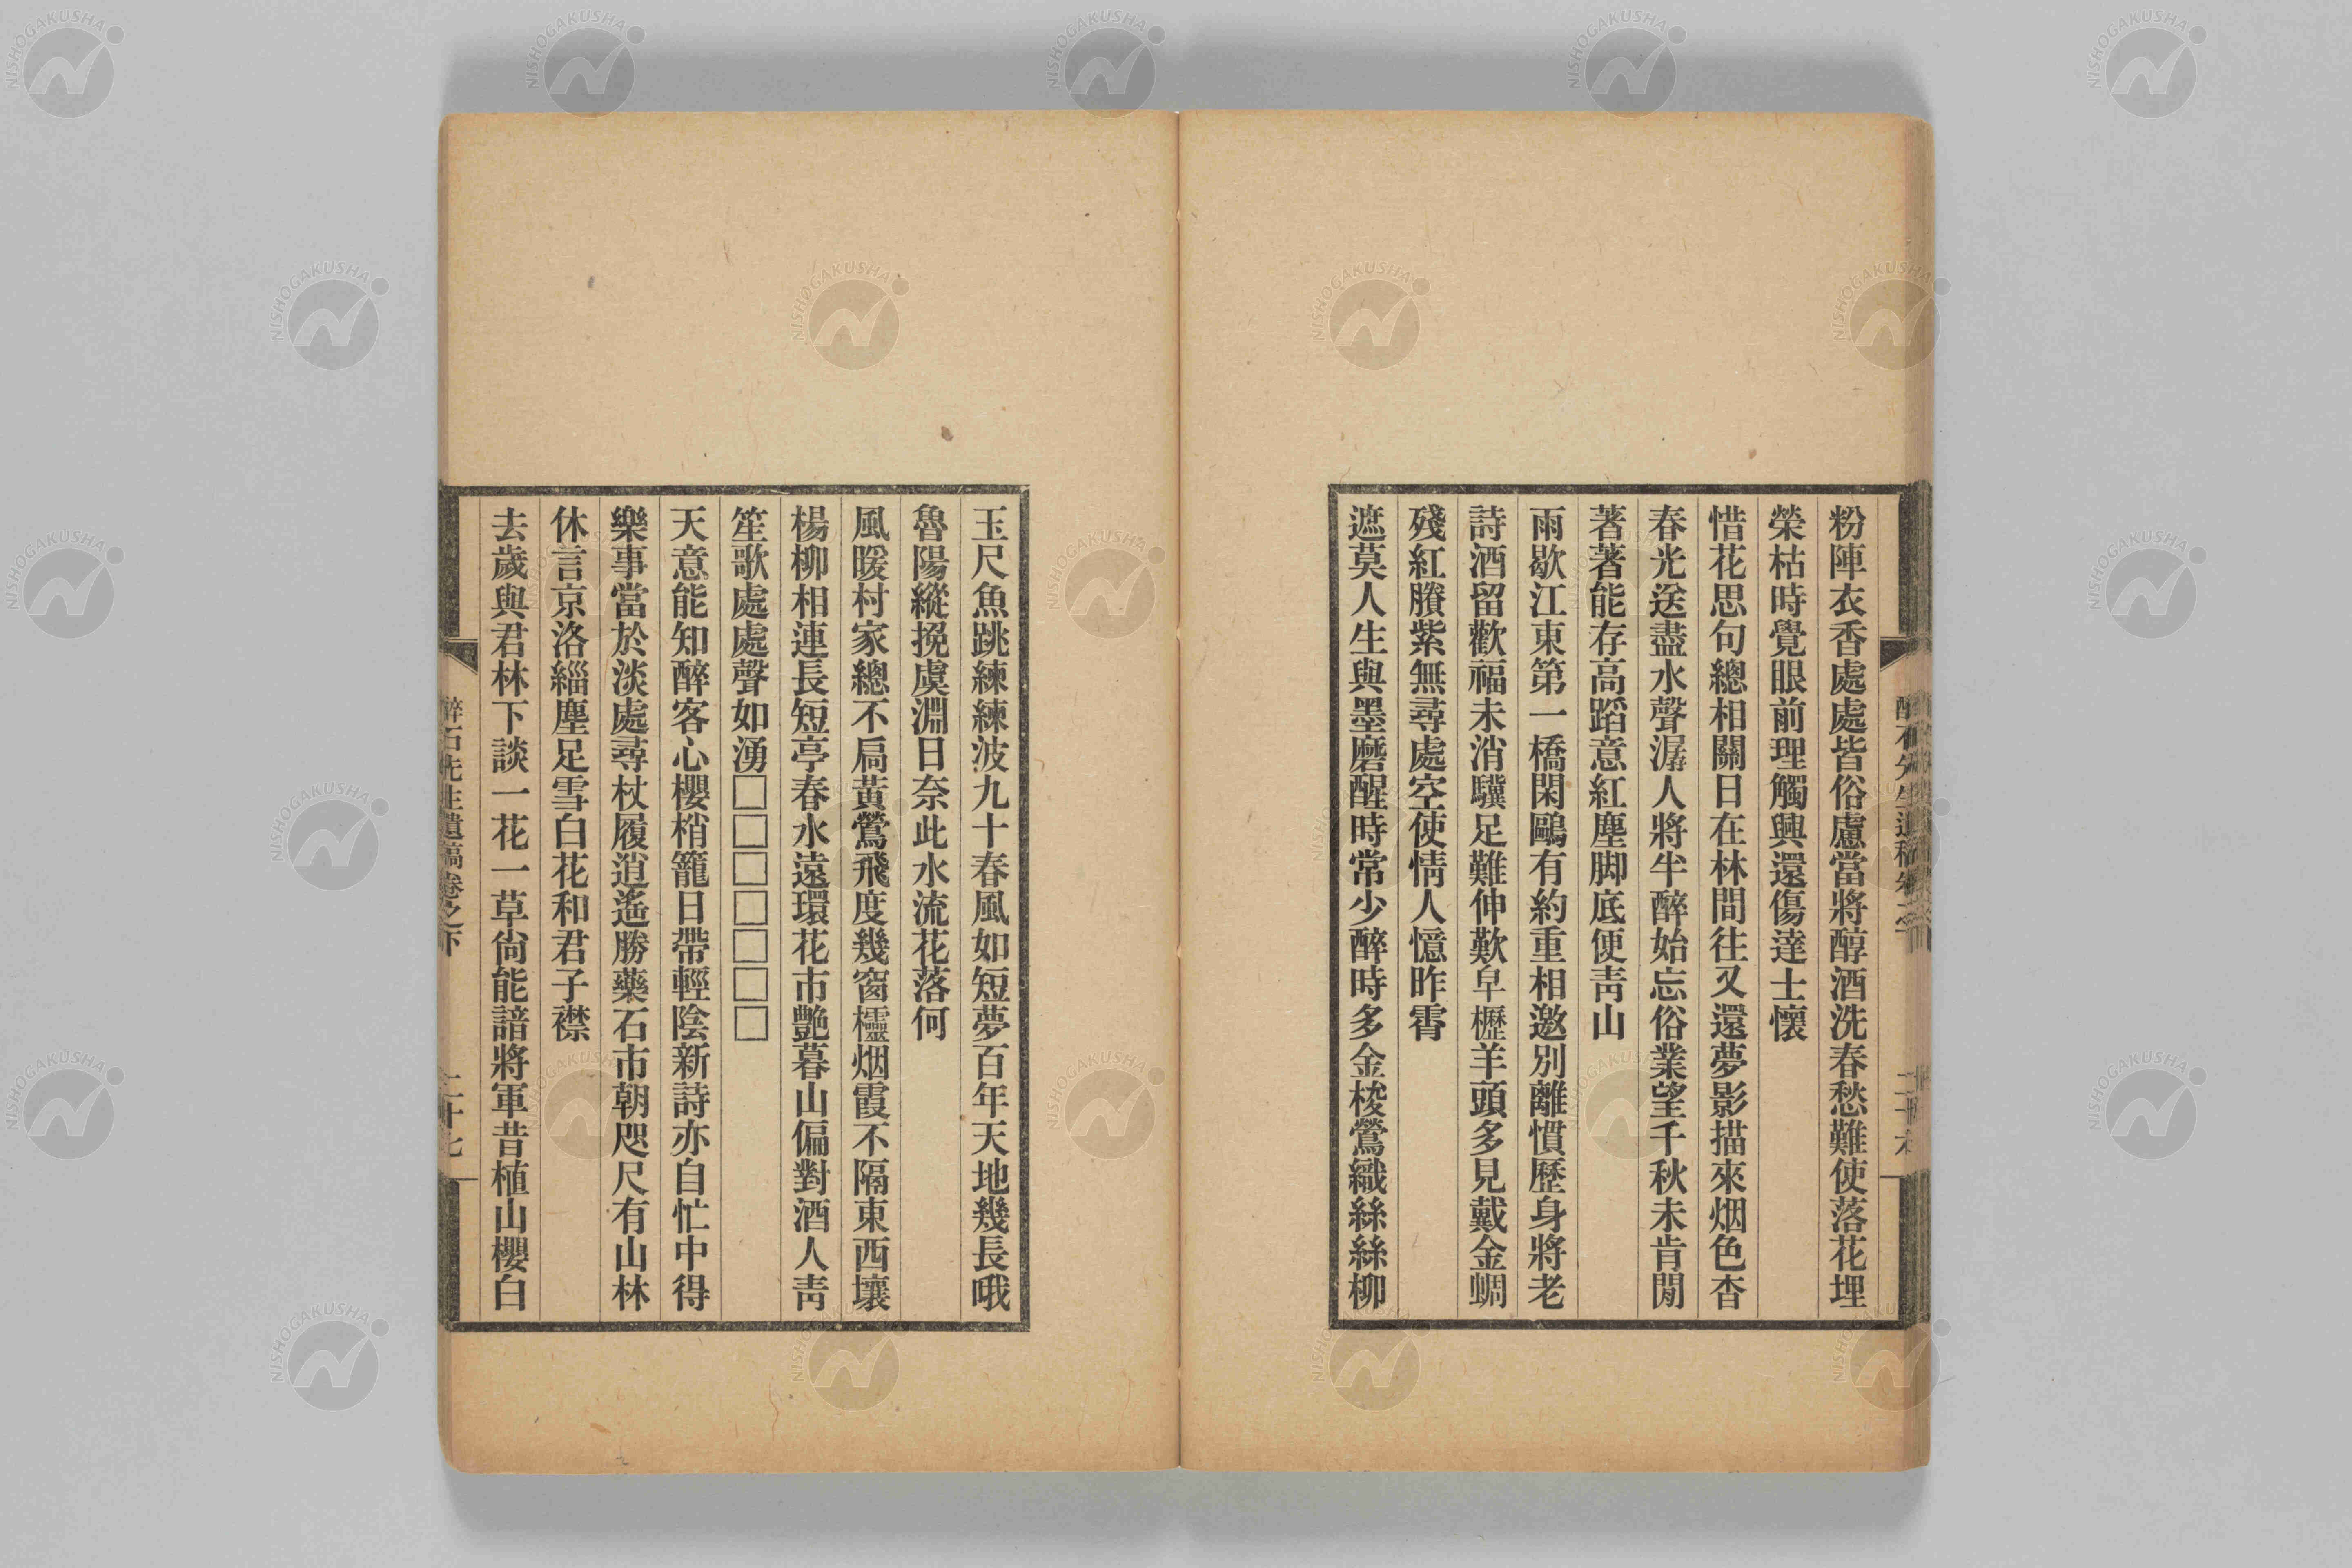 粉陣衣香處處皆俗慮當將醇酒洗春愁難使落花埋
榮枯時覺眼前理觸興還傷達士懷
惜花思句總相關日在林間往又還夢影描來烟色杳
春光送盡水聲潺人將半醉始忘俗業望千秋未肯閒
著著能存高蹈意紅塵脚底便靑山
雨歇江東第一橋閑鷗有約重相邀別離慣歷身將老
詩酒留歡福未消驥足難伸歎皁櫪羊頭多見戴金蜩
殘紅賸紫無尋處空使情人憶昨霄
遮莫人生與墨磨醒時常少醉時多金梭鶯織絲絲柳
玉尺魚跳練練波九十春風如短夢百年天地幾長哦
魯陽縱挽虞淵日奈此水流花落何
風暖村家總不扃黃鶯飛度幾窗櫺烟霞不隔東西壤
楊柳相連長短亭春水遠環花市艷暮山偏對酒人靑
笙歌處處聲如湧□□□□□□□
天意能知醉客心櫻梢籠日帶輕陰新詩亦自忙中得
樂事當於淡處尋杖履逍遙勝藥石市朝咫尺有山林
休言京洛緇塵足雪白花和君子襟
去歲與君林下談一花一草尙能諳將軍昔植山櫻白
醉石先生遺稿卷之下
二十七
NISHOGAKUSHA